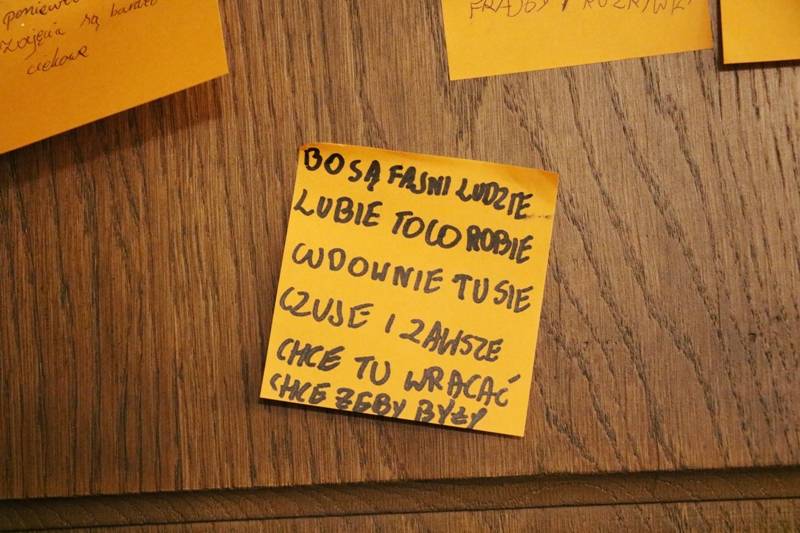 poniewa
zajęcia są bardzo
ciekawe
BO SĄ FAJNI LUDZIE
LUBIE TO CO ROBIE
WDOWNIE TU SIE
CZUJE I ZAWSZE
CHCE TU WRACAĆ
CHCE ZEBY BYŻY